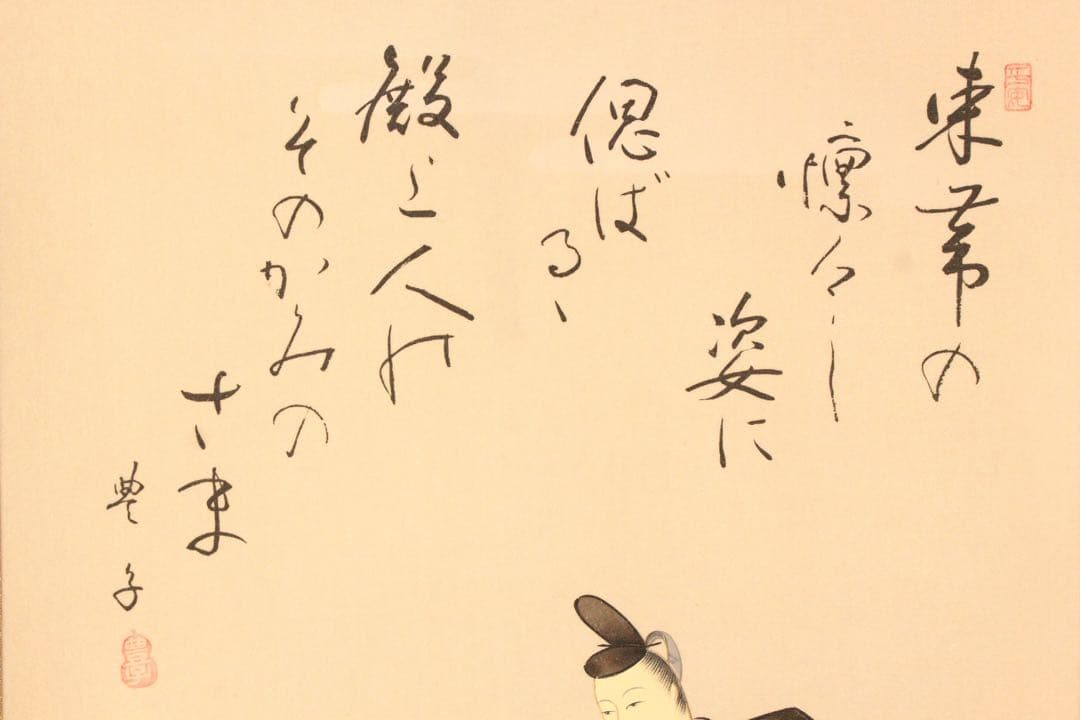 束帯の
凛々し
姿に
偲ば
るゝ
殿上人の
そのかみの
さま
豊子